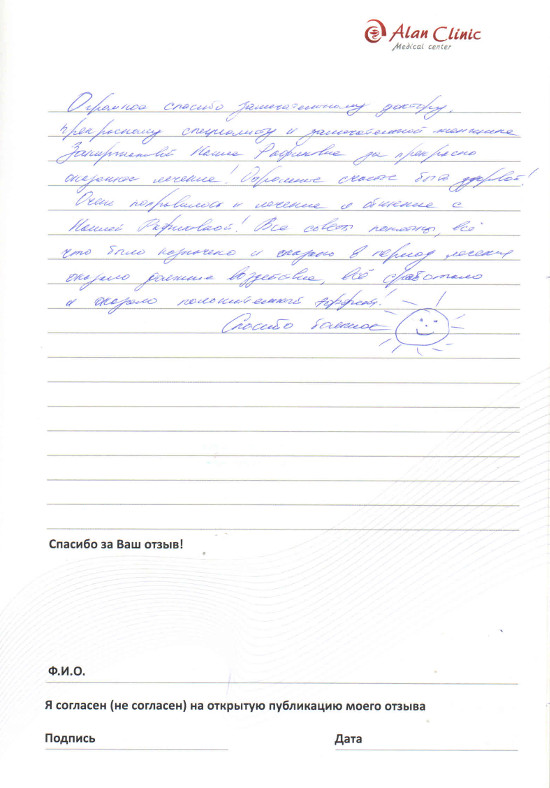 Alan Clinic
Medical center
Огромное спасибо замечательному доктору,
прекрасному специалисту и замечательной женщине
Наиле Рафиковне за прекрасно
оказанное лечение! Огромное счастье быть здоровой!
Очень понравилось и лечение и общение с
Наилей Рафиковной! Все советы полезны, всё
что было назначено и сказано в период лечения
оказало должное воздействие, всё сработало
и оказало положительный эффект!
Спасибо большое
Спасибо за Ваш отзыв!
Ф.И.О.
Я согласен (не согласен) на открытую публикацию моего отзыва
Подпись Дата